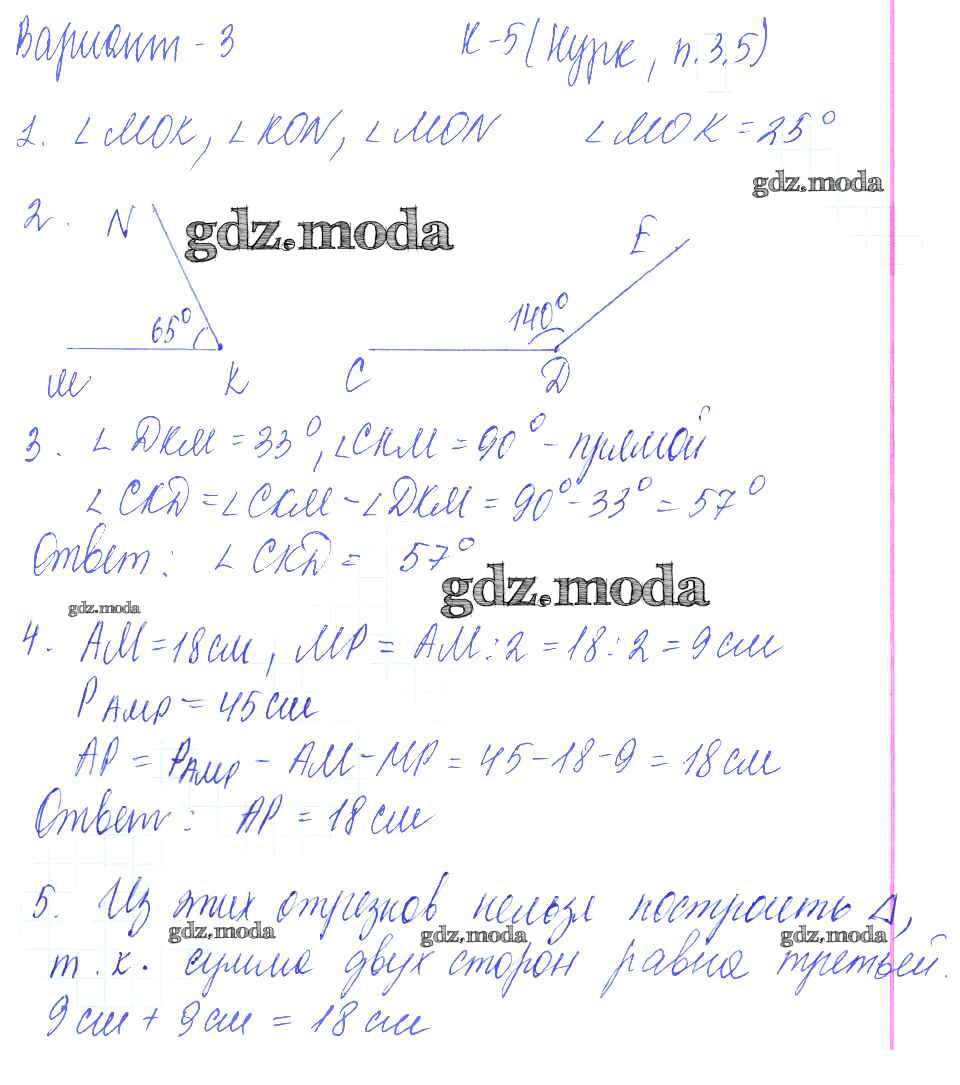 Вариант - 3 К-5 (Нурк, п.3.5)
1. ∠МОК, ∠KON, ∠MON ∠МОК = 25°
gdz.moda
2. N gdz.moda E
65° 140°
M K C D
3. ∠DKM = 33°, ∠CKM = 90° - прямой
∠CKD = ∠CKM - ∠DKM = 90° - 33° = 57°
Ответ: ∠CKD = 57°
gdz.moda
gdz.moda
4. AM = 18 см, MP = AM : 2 = 18 : 2 = 9 см
P AMP = 45 см
AP = P AMP - AM - MP = 45 - 18 - 9 = 18 см
Ответ: AP = 18 см
5. Из этих отрезков нельзя построить Δ,
gdz.moda gdz.moda gdz.moda
т.к. сумма двух сторон равна третьей.
9 см + 9 см = 18 см